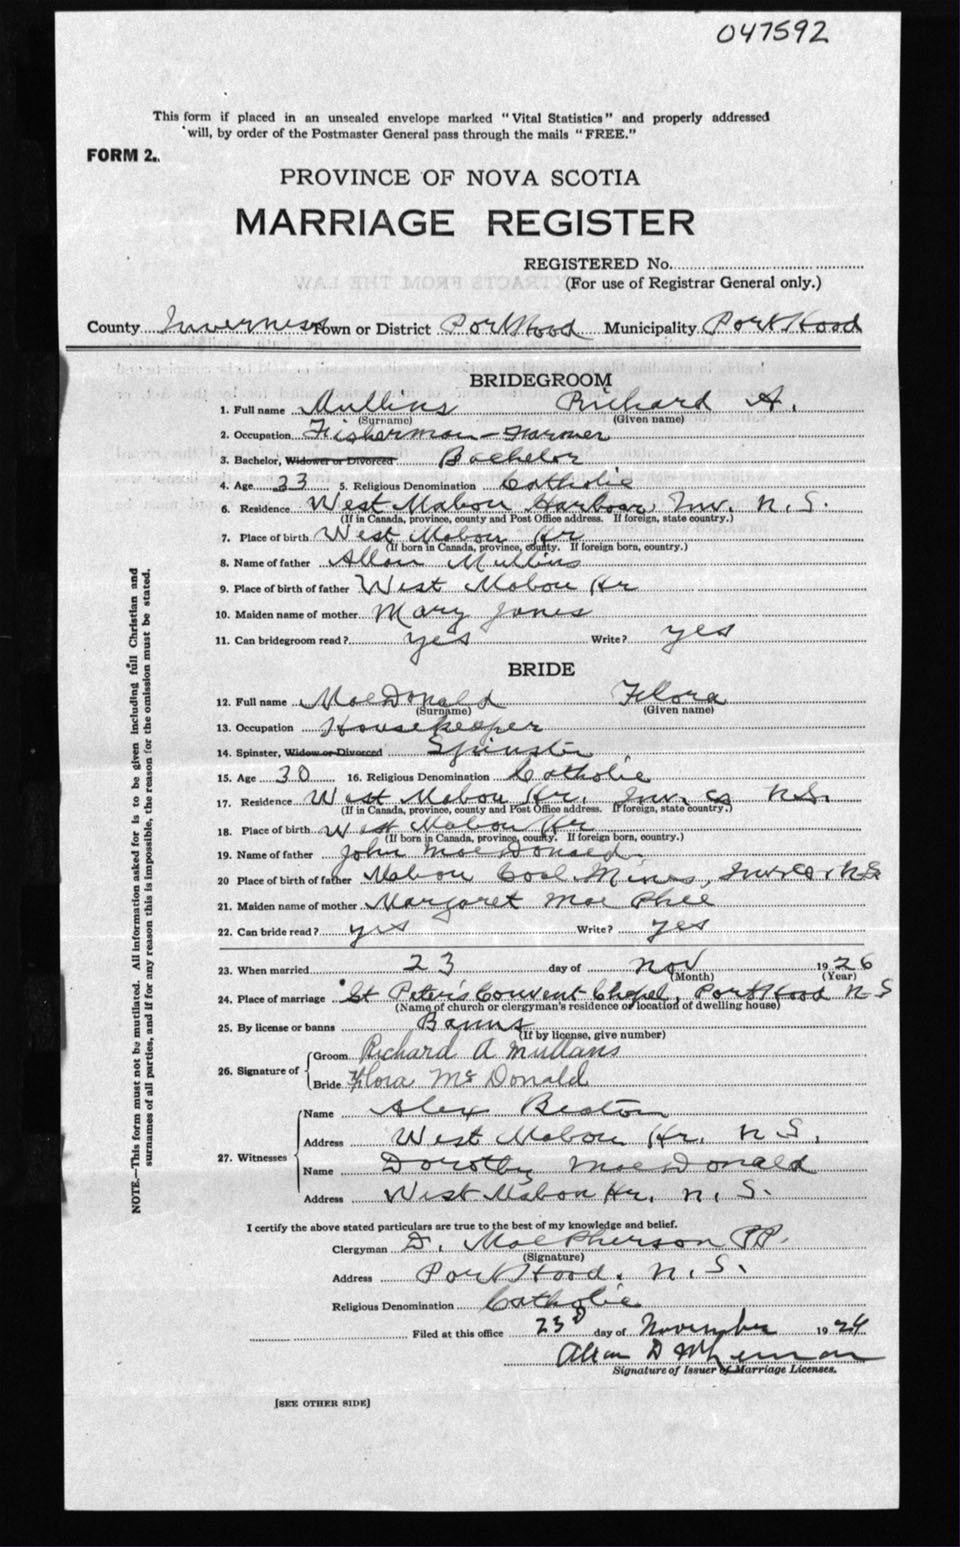 047592
This form if placed in an unsealed envelope marked "Vital Statistics" and properly addressed
will, by order of the Postmaster General pass through the mails "FREE."
FORM 2.
PROVINCE OF NOVA SCOTIA
MARRIAGE REGISTER
REGISTERED No.
(For use of Registrar General only.)
County Inverness Town or District Port Hood Municipality Port Hood
BRIDEGROOM
1. Full name Mullins Richard A.
(Surname) (Given name)
2. Occupation Fisherman – Farmer
3. Bachelor, Widower or Divorced Bachelor
4. Age 33 5. Religious Denomination Catholic
6. Residence West Mabou Harbour, Inv. N. S.
(If in Canada, province, county and Post Office address. If foreign, state country.)
7. Place of birth West Mabou Hr
(If born in Canada, province, county. If foreign born, country.)
8. Name of father Allan Mullins
9. Place of birth of father West Mabou Hr
10. Maiden name of mother Mary Jones
11. Can bridegroom read? yes Write? yes
BRIDE
12. Full name MacDonald Flora
(Surname) (Given name)
13. Occupation Housekeeper
14. Spinster, Widow or Divorced Spinster
15. Age 30 16. Religious Denomination Catholic
17. Residence West Mabou Hr, Inv. Co N.S.
(If in Canada, province, county and Post Office address. If foreign, state country.)
18. Place of birth West Mabou Hr
(If born in Canada, province, county. If foreign born, country.)
19. Name of father John MacDonald
20 Place of birth of father Mabou Coal Mines, Inv. Co. N.S.
21. Maiden name of mother Margaret MacPhee
22. Can bride read? yes Write? yes
23. When married 23 day of Nov 1926
(Month) (Year)
24. Place of marriage St Peter's Convent Chapel, Port Hood N S
(Name of church or clergyman's residence or location of dwelling house)
25. By license or banns Banns
(If by license, give number)
26. Signature of Groom Richard A Mullans
Bride Flora McDonald
27. Witnesses Name Alex Beaton
Address West Mabou Hr. N S.
Name Dorothy MacDonald
Address West Mabou Hr. N. S.
I certify the above stated particulars are true to the best of my knowledge and belief.
Clergyman D. MacPherson P.P.
(Signature)
Address Port Hood. N. S.
Religious Denomination Catholic
Filed at this office 23d day of November 1926
Signature of Issuer of Marriage Licenses.
[SEE OTHER SIDE]
NOTE.—This form must not be mutilated. All information asked for is to be given including full Christian and
surnames of all parties, and if for any reason this is impossible, the reason for the omission must be stated.